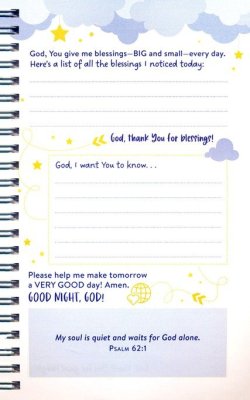 God, You give me blessings—BIG and small—every day.
Here's a list of all the blessings I noticed today:
God, thank You for blessings!
God, I want You to know. . .
Please help me make tomorrow
a VERY GOOD day! Amen.
GOOD NIGHT, GOD!
My soul is quiet and waits for God alone.
PSALM 62:1